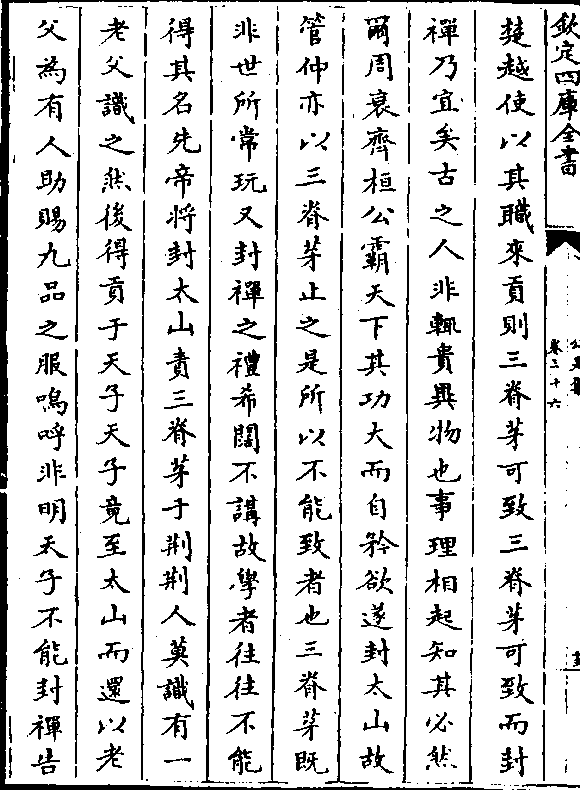 欽定四庫全書
卷三十六
楚越使以其職來貢則三脊茅可致三脊茅可致而封
禪乃宜矣古之人非輒貴異物也事理相起知其必然
爾周衰齊桓公霸天下其功大而自矜欲遂封太山故
管仲亦以三脊茅止之是所以不能致者也三脊茅既
非世所常玩又封禪之禮希闊不講故學者往往不能
得其名先帝将封太山責三脊茅于荆荆人莫識有一
老父識之然後得貢于天子天子竟至太山而還以老
父為有人助賜九品之服嗚呼非明天子不能封禪告